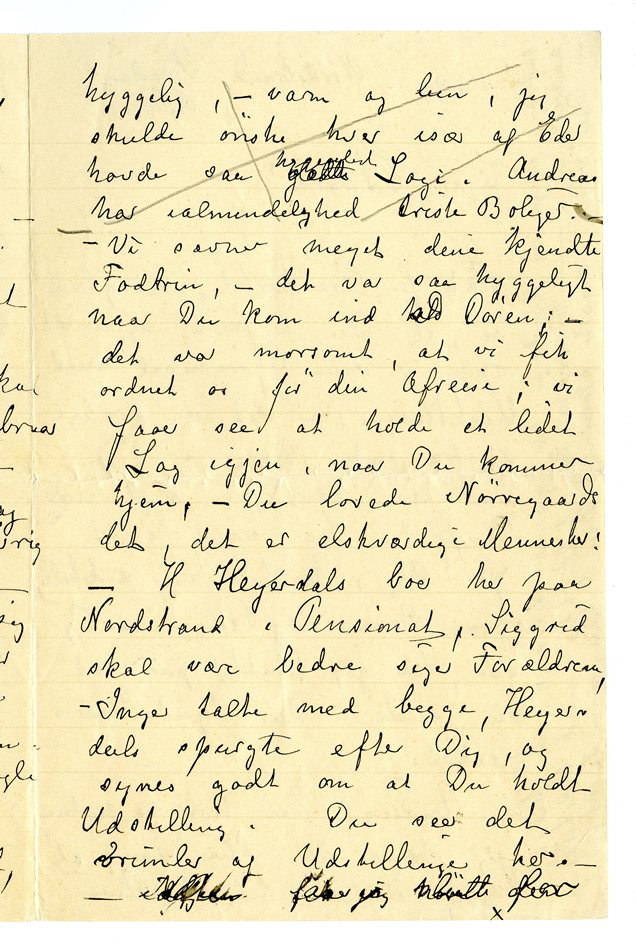 hyggelig, – varm og luun, jeg
skulde önske hver især af Eder
havde saa hyggeligt Logi. Andreas
har ialmindelighed triste Boliger. –
– Vi savner meget dine kjendte
Fodtrin, – det var saa hyggeligt
naar Du kom ind Døren; –
det var morsomt, at vi fik
ordnet os för din Afreise; vi
faaer see at holde et lidet
Lag igjen, naar Du kommer
hjem, – Du lovede Nörregaards
det, det er elskværdige Mennesker!
– H Heyerdals boer her paa
Nordstrand i Pensionat, Siggrid
skal være bedre siger Forældrene,
– Inger talte med begge, Heyer-
dals spurgte efter Dig, og
synes godt om at Du holdt
Udstilling. Du seer det
vrimler af Udstillinger her. –
– jeg